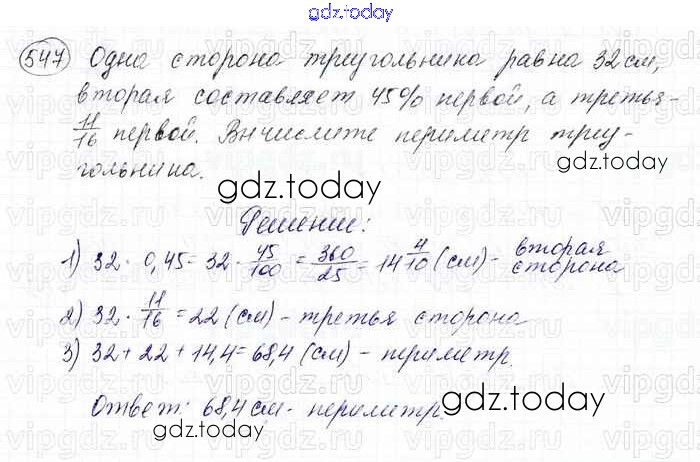 gdz.today
547 Одна сторона треугольника равна 32 см,
вторая составляет 45% первой, а третья-
11/16 первой. Вычислите периметр треу-
гольника.
gdz.today
gdz.today
Решение:
1) 32 · 0,45 = 32 · 45/100 = 360/25 = 14 4/10 (см) - вторая сторона
2) 32 · 11/16 = 22 (см) - третья сторона
3) 32 + 22 + 14,4 = 68,4 (см) - периметр.
gdz.today
Ответ: 68,4 см - периметр.
gdz.today
gdz.today